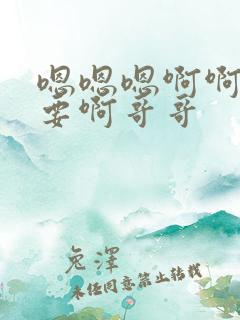 嗯嗯嗯啊啊
要啊哥哥
兔澤
未经同意禁止转载